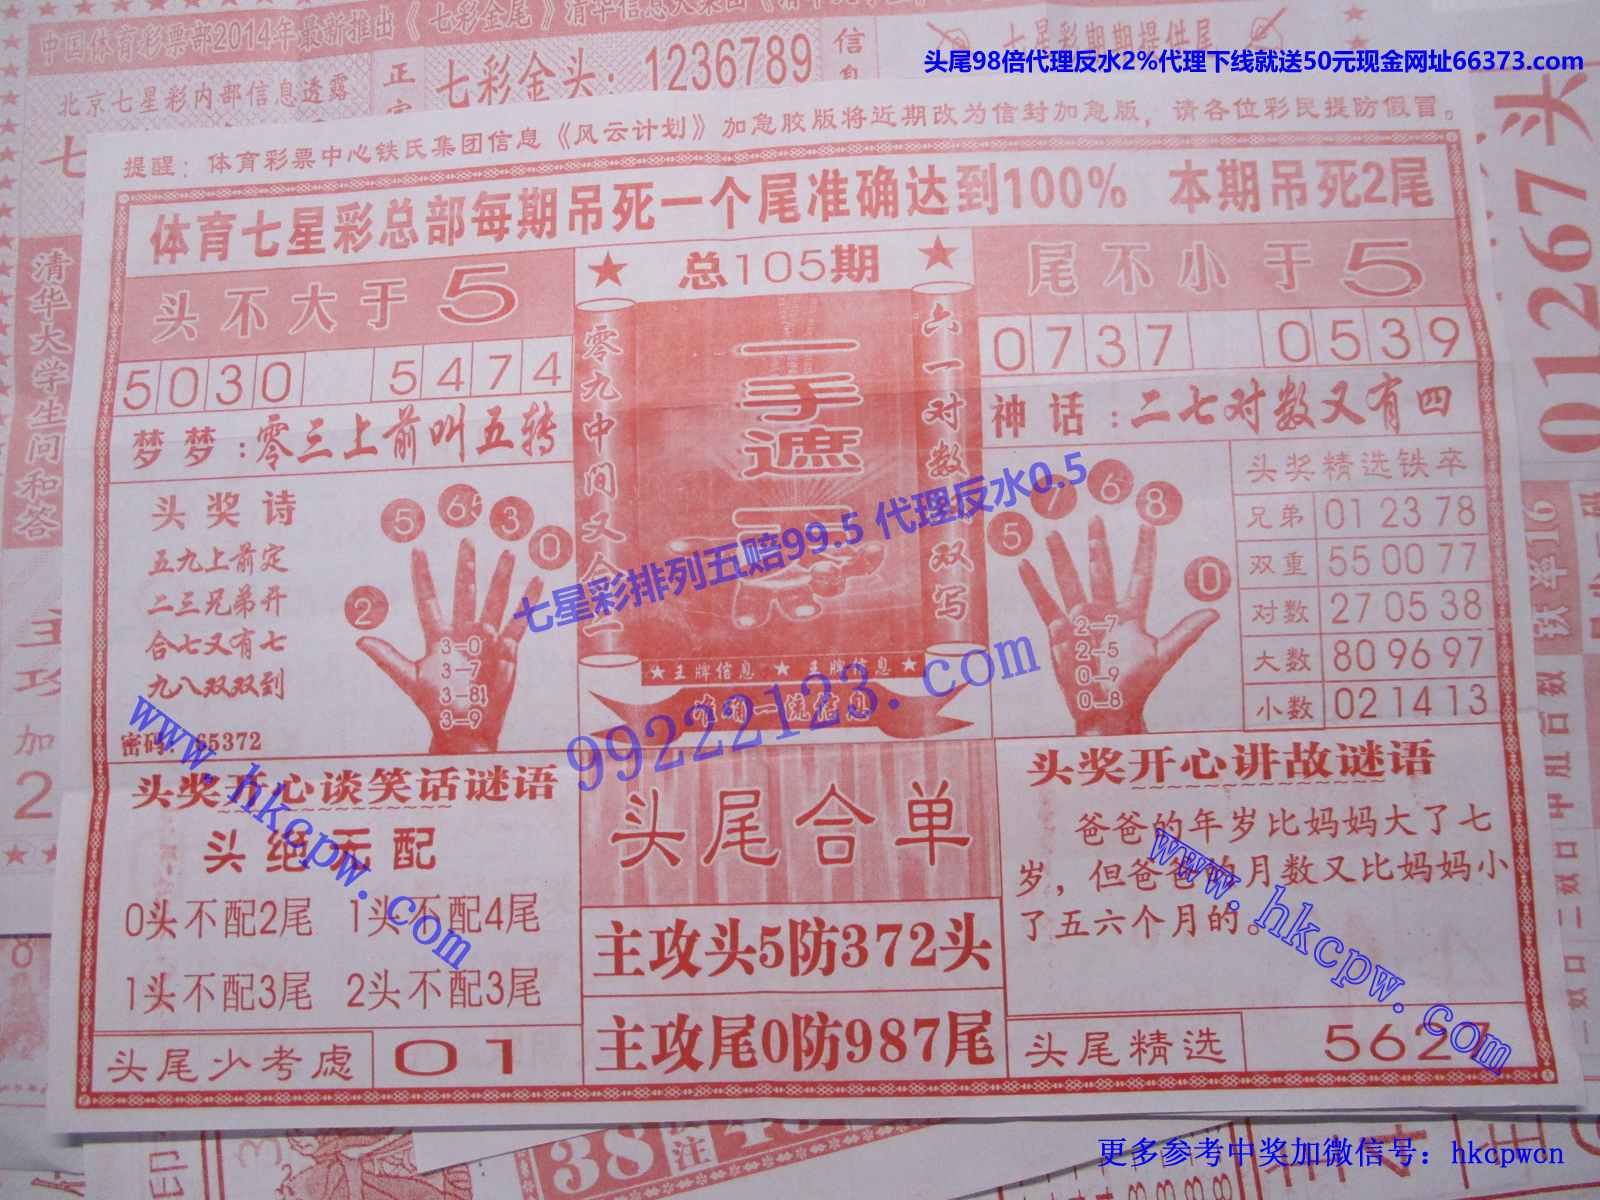 中国体育彩票部2014年最新推出《七彩金尾》清华信息大集团
北京七星彩内部信息透露
七彩金头：1236789
信
头尾98倍代理反水2%代理下线就送50元现金网址66373.com
提醒：体育彩票中心铁氏集团信息《风云计划》加急胶版将近期改为信封加急版，请各位彩民提防假冒。
体育七星彩总部每期吊死一个尾准确达到100% 本期吊死2尾
头不大于5
总105期
尾不小于5
5030 5474
0737 0539
梦梦：零三上前叫五转
神话：二七对数又有四
零九中间又合一
一手遮
六一对数
双写
头奖诗
五九上前定
二三兄弟开
合七又有七
九八双双到
密码：65372
2
5
65
3
0
3-0
3-7
3-81
3-9
5
7
6
8
0
2-7
2-5
0-9
0-8
头奖精选铁卒
兄弟 01 23 78
双重 55 00 77
对数 27 05 38
大数 80 96 97
小数 02 14 13
★王牌信息 ★王牌信息★
准确一流信息
七星彩排列五赔99.5 代理反水0.5
99222123.com
www.hkcpw.com
www.hkcpw.com
头奖开心谈笑话谜语
头绝无配
0头不配2尾 1头不配4尾
1头不配3尾 2头不配3尾
头尾少考虑 01
头尾合单
主攻头5防372头
主攻尾0防987尾
头奖开心讲故谜语
爸爸的年岁比妈妈大了七
岁，但爸爸的月数又比妈妈小
了五六个月的。
头尾精选 5627
清华大学生问和答
01267头
更多参考中奖加微信号：hkcpwcn